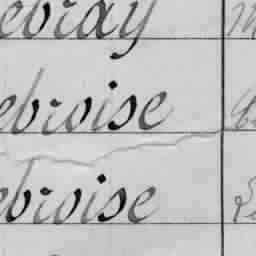 ebray
ebroise
ebroise